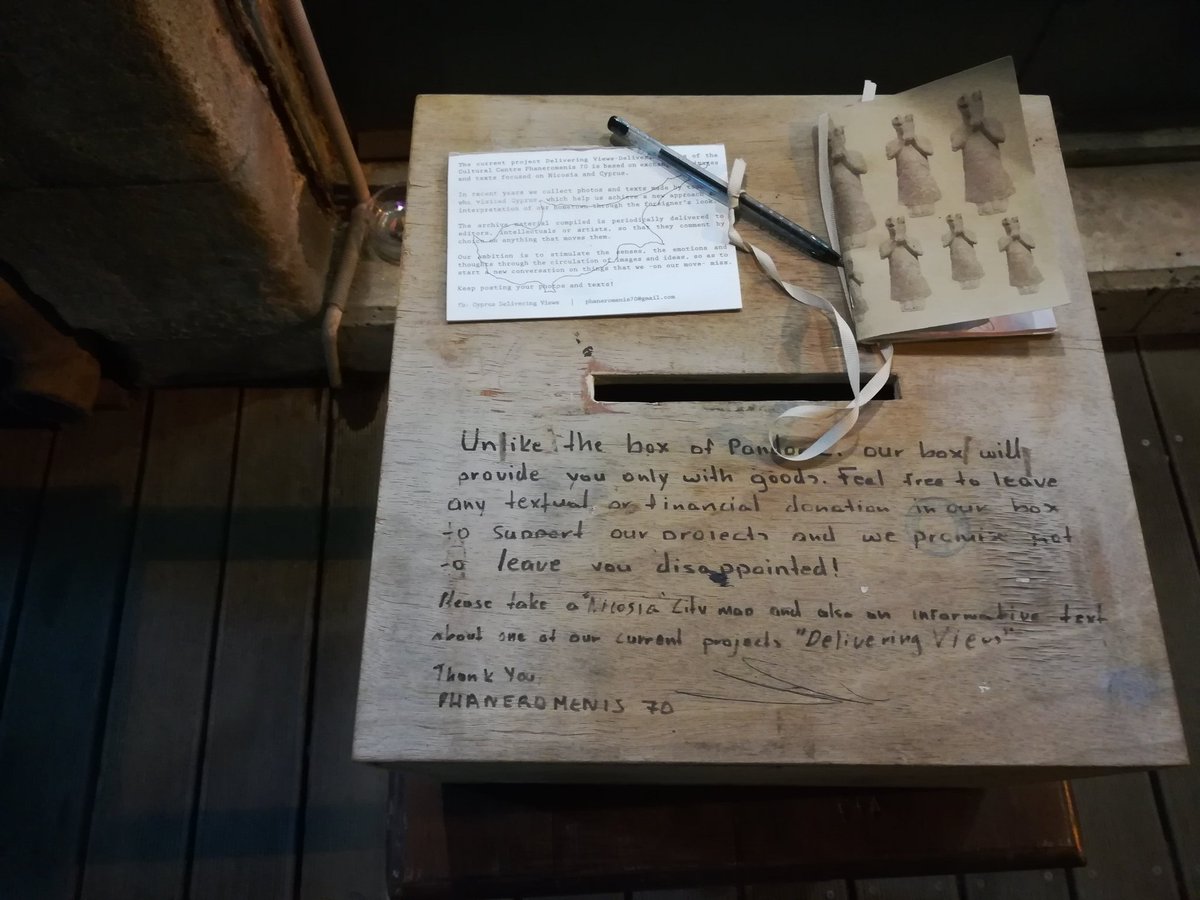 The current project Delivering Views Deliver of the
Cultural Centre Phaneromenis 70 is based on
and texts focused on Nicosia and Cyprus.
In recent years we collect photos and texts made by
who visited Cyprus, which help us achieve a new approach
interpretation of our hometown through the foreigner's look.
The archive material compiled is periodically delivered to
editors, intellectuals or artists, so that they comment by
choice on anything that moves them.
Our ambition is to stimulate the senses, the emotions and
thoughts through the circulation of images and ideas, so as to
start a new conversation on things that we -on our move- miss.
Keep posting your photos and texts!
fb: Cyprus Delivering Views | phaneromenis70@gmail.com
Unlike the box of Pandora, our box will
provide you only with goods. Feel free to leave
any textual or financial donation in our box
to support our projects and we promise not
to leave you disappointed!
Please take a "Nicosia" City map and also an informative text
about one of our current projects "Delivering Views"
Thank You,
PHANEROMENIS 70